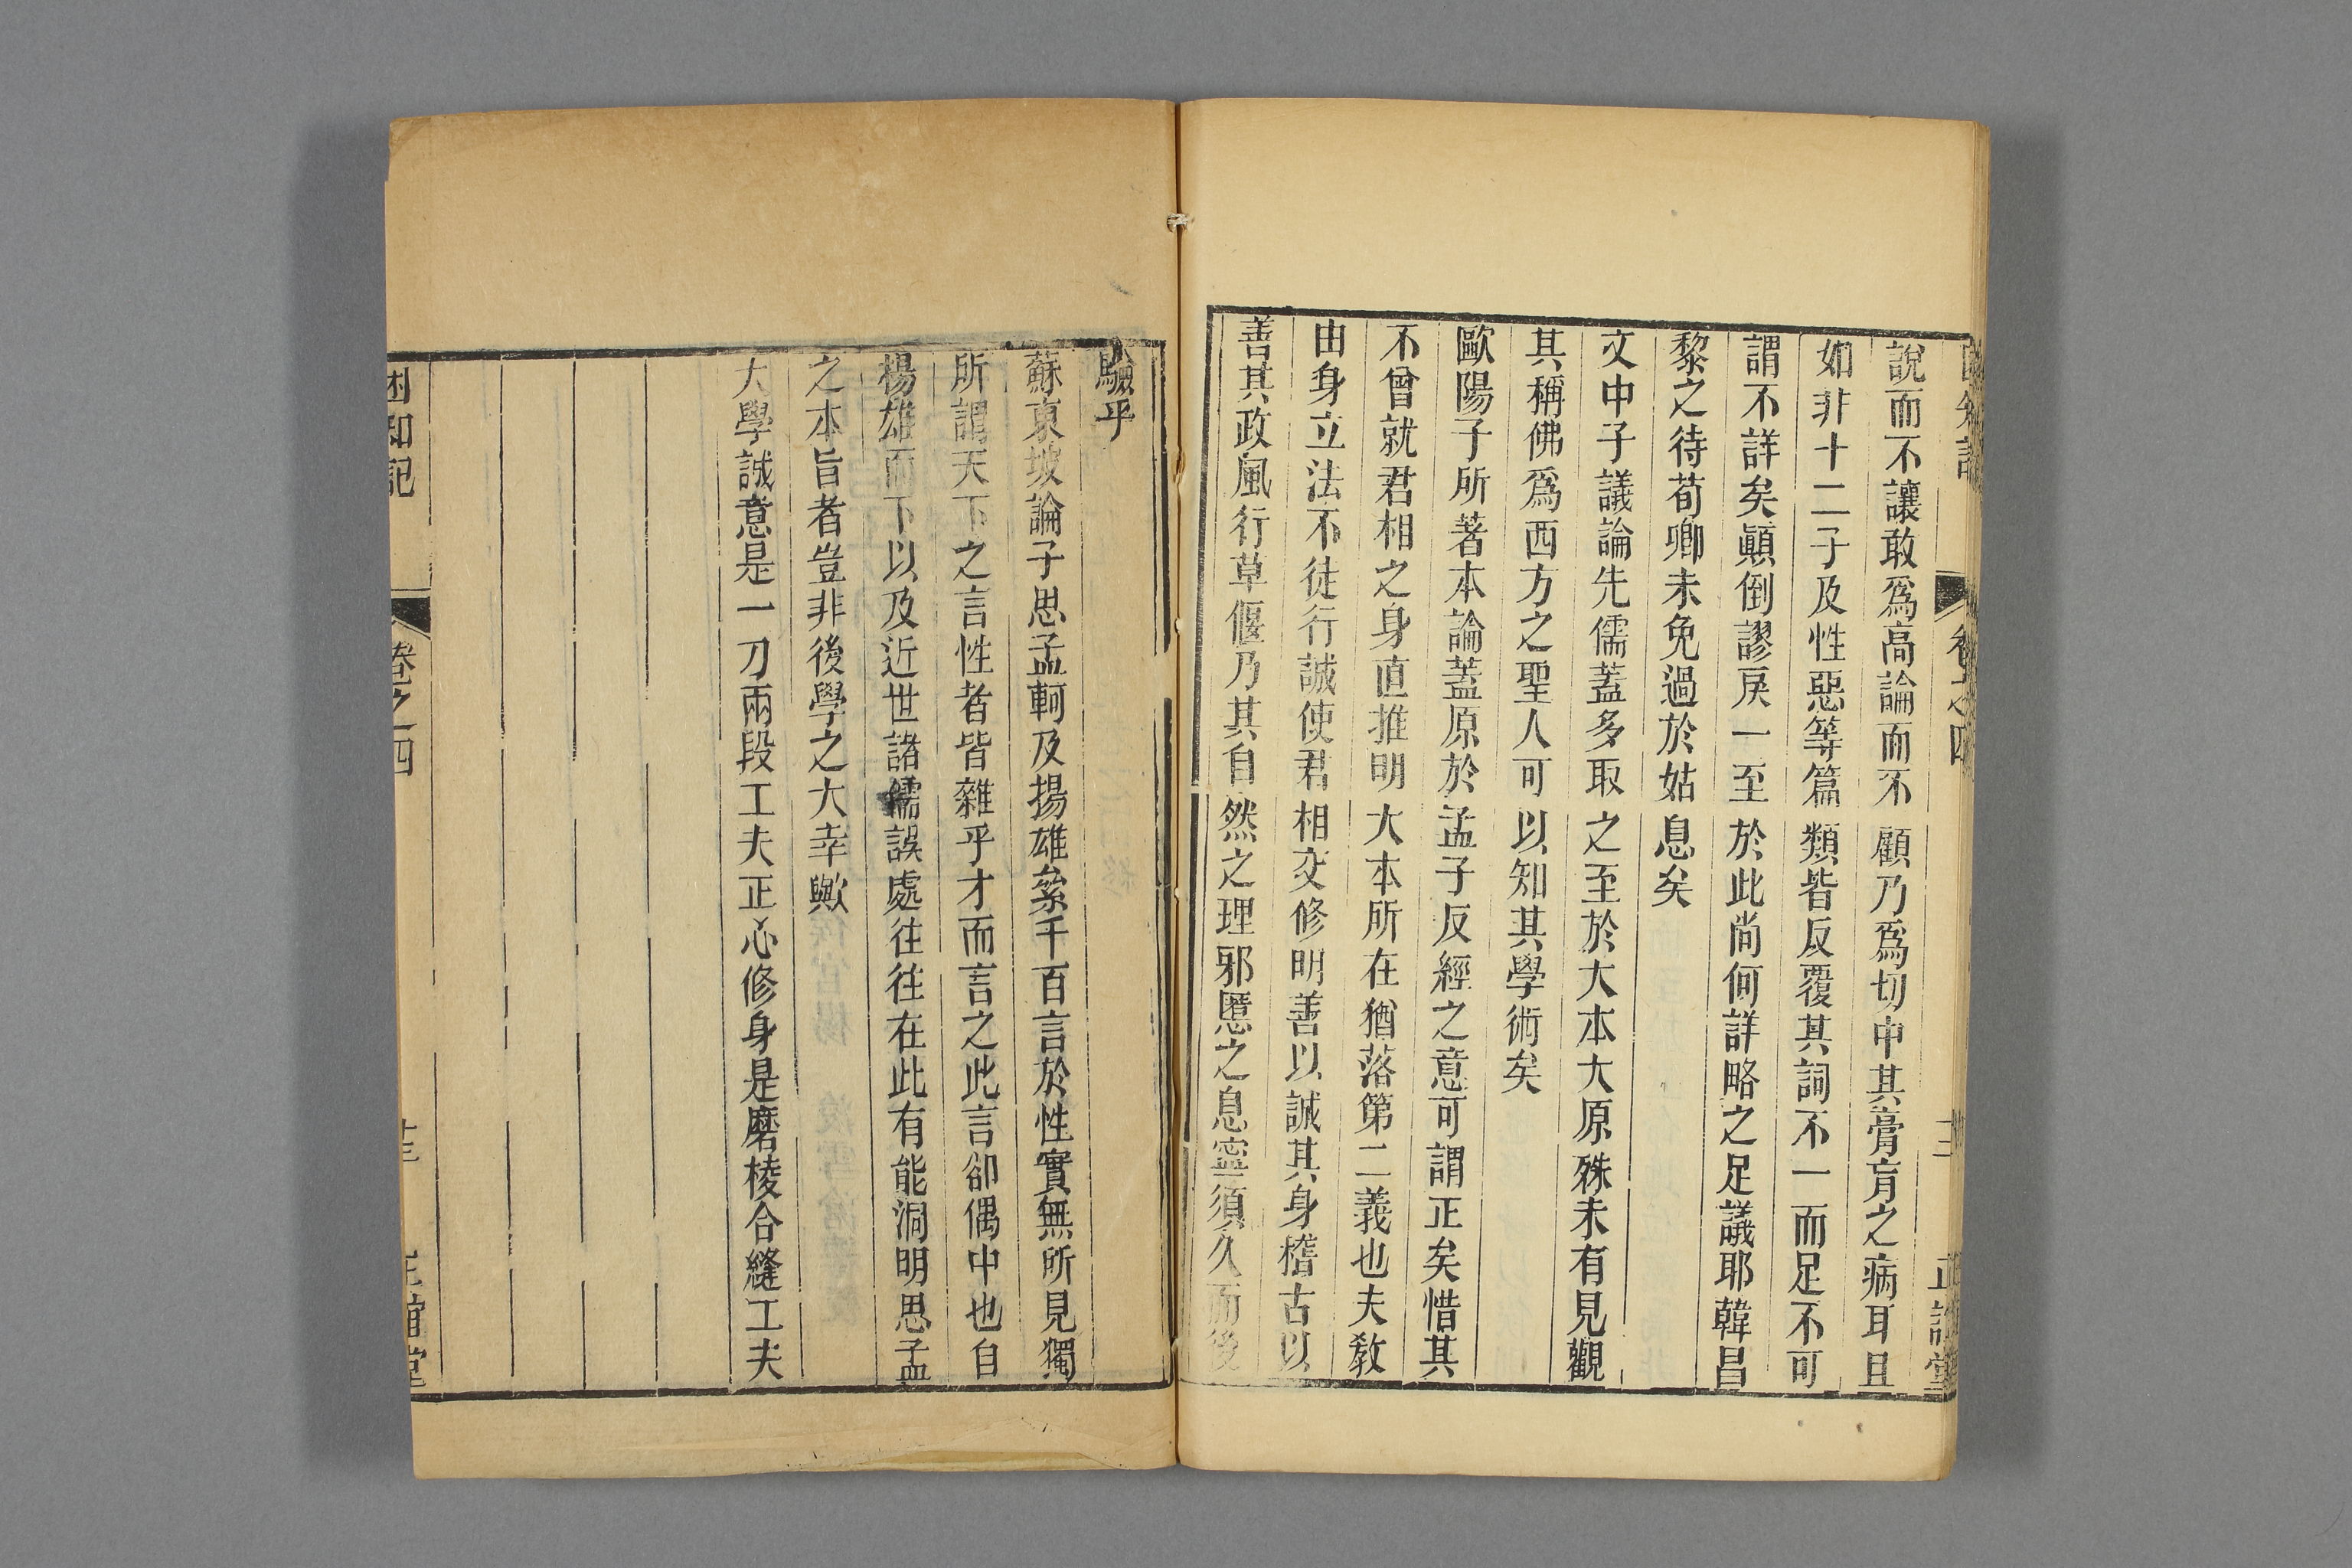 說而不讓敢爲高論而不顧乃爲切中其膏肓之病耳且
如非十二子及性惡等篇類皆反覆其詞不一而足不可
謂不詳矣顚倒謬戾一至於此尚何詳略之足議耶韓昌
黎之待荀卿未免過於姑息矣
文中子議論先儒蓋多取之至於大本大原殊未有見觀
其稱佛爲西方之聖人可以知其學術矣
歐陽子所著本論蓋原於孟子反經之意可謂正矣惜其
不曾就君相之身直推明大本所在猶落第二義也夫敎
由身立法不徒行誠使君相交修明善以誠其身稽古以
善其政風行草偃乃其自然之理邪慝之息寧須久而後
驗乎
蘇東坡論子思孟軻及揚雄纍千百言於性實無所見獨
所謂天下之言性者皆雜乎才而言之此言卻偶中也自
楊雄而下以及近世諸儒誤處往往在此有能洞明思孟
之本旨者豈非後學之大幸歟
大學誠意是一刀兩段工夫正心修身是磨棱合縫工夫
困知記
卷之四
十三
正誼堂